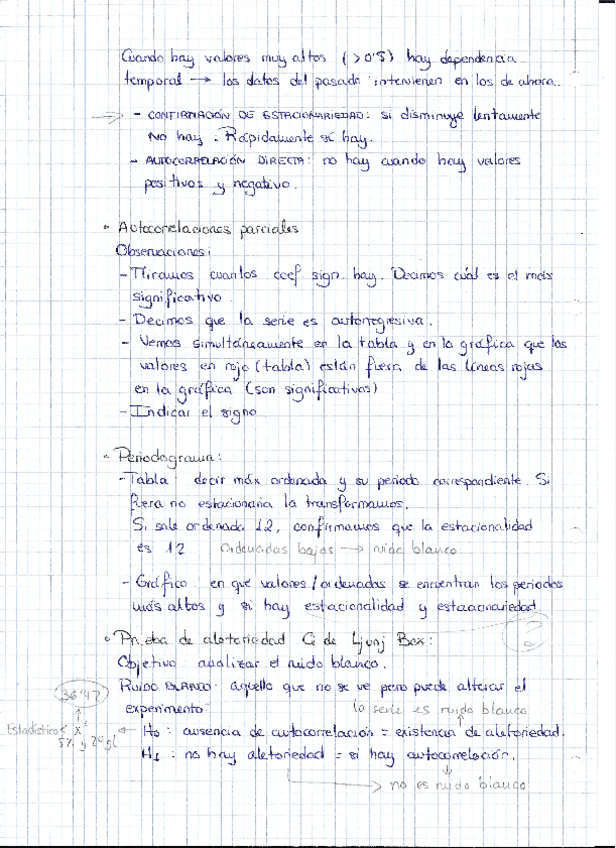 Cuando hay valores muy altos (>0'5) hay dependencia
temporal → los datos del pasado intervienen en los de ahora.
- CONFIRMACIÓN DE ESTACIONARIEDAD: si disminuye lentamente
No hay. Rápidamente sí hay.
- AUTOCORRELACIÓN DIRECTA: no hay cuando hay valores
positivos y negativo.
• Autocorrelaciones parciales
Observaciones:
- Miramos cuantos coef sign. hay. Decimos cuál es el más
significativo.
- Decimos que la serie es autorregresiva.
- Vemos simultáneamente en la tabla y en la gráfica que los
valores en rojo (tabla) están fuera de las líneas rojas
en la gráfica (son significativos)
- Indicar el signo
• Periodograma:
- Tabla: decir máx ordenada y su periodo correspondiente. Si
fuera no estacionaria la transformamos.
Si sale ordenada 12, confirmamos que la estacionalidad
es 12 Ordenadas bajas → ruido blanco
- Gráfico en qué valores/ordenadas se encuentran los periodos
más altos y si hay estacionalidad y estacionariedad
?
• Prueba de aletoriedad Q de Ljunj Box:
Objetivo: analizar el ruido blanco.
RUIDO BLANCO: aquello que no se ve pero puede alterar el
36'42 experimento la serie es ruido blanco
Estadístico H₀: ausencia de autocorrelación = existencia de aletoriedad.
5% y gl H₁: no hay aletoriedad = si hay autocorrelación.
→ no es ruido blanco